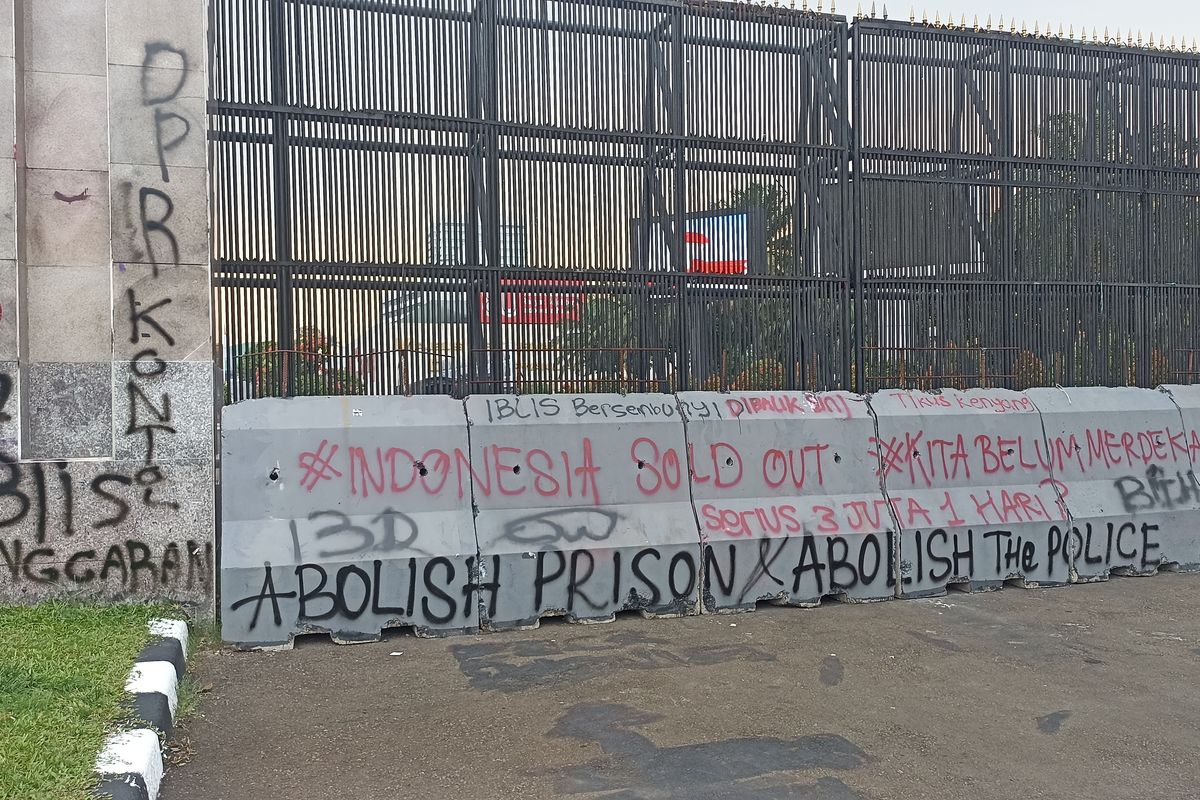 DPR KONTOL
IBLIS
ANGGARAN
IBLIS Bersembunyi DIBALIK SINI
Tikus Kenyang
#INDONESIA SOLD OUT
#KITA BELUM MERDEKA
SERIUS 3 JUTA 1 HARI?
13D
ABOLISH PRISON & ABOLISH THE POLICE